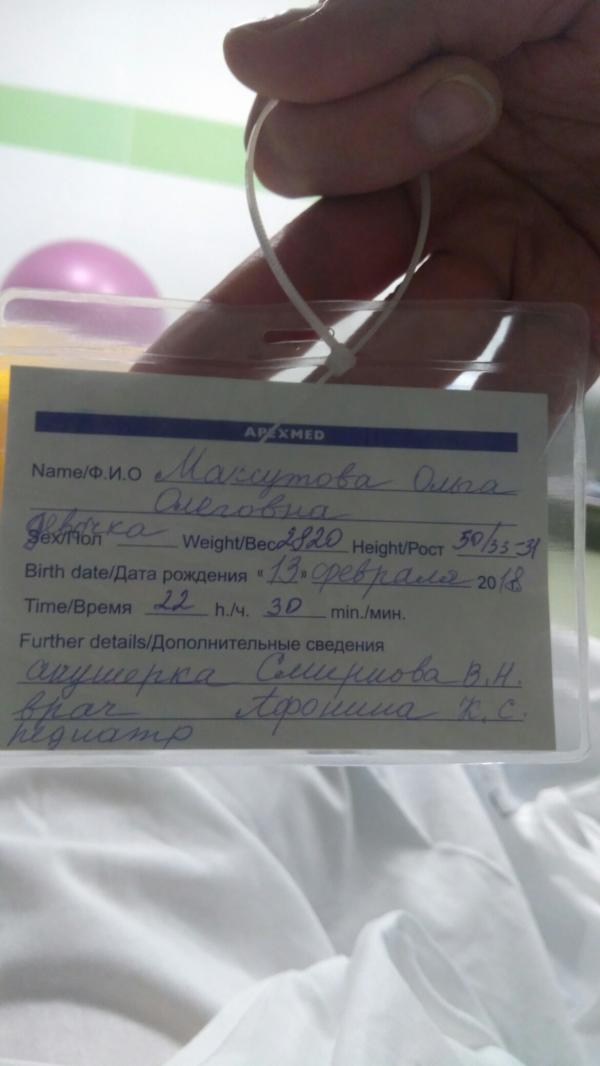 APEXMED
Name/Ф.И.О Максутова Ольга
Олеговна
девочка
Sex/Пол Weight/Вес 2820 Height/Рост 50/33-31
Birth date/Дата рождения "13" февраля 2018
Time/Время 22 h./ч. 30 min./мин.
Further details/Дополнительные сведения
акушерка Смирнова В.Н.
врач Афонина К.С.
педиатр